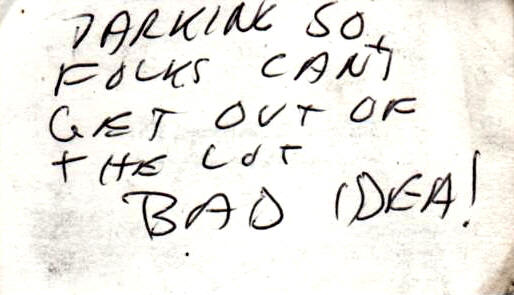 PARKING SO
FOLKS CAN'T
GET OUT OF
THE LOT
BAD IDEA!